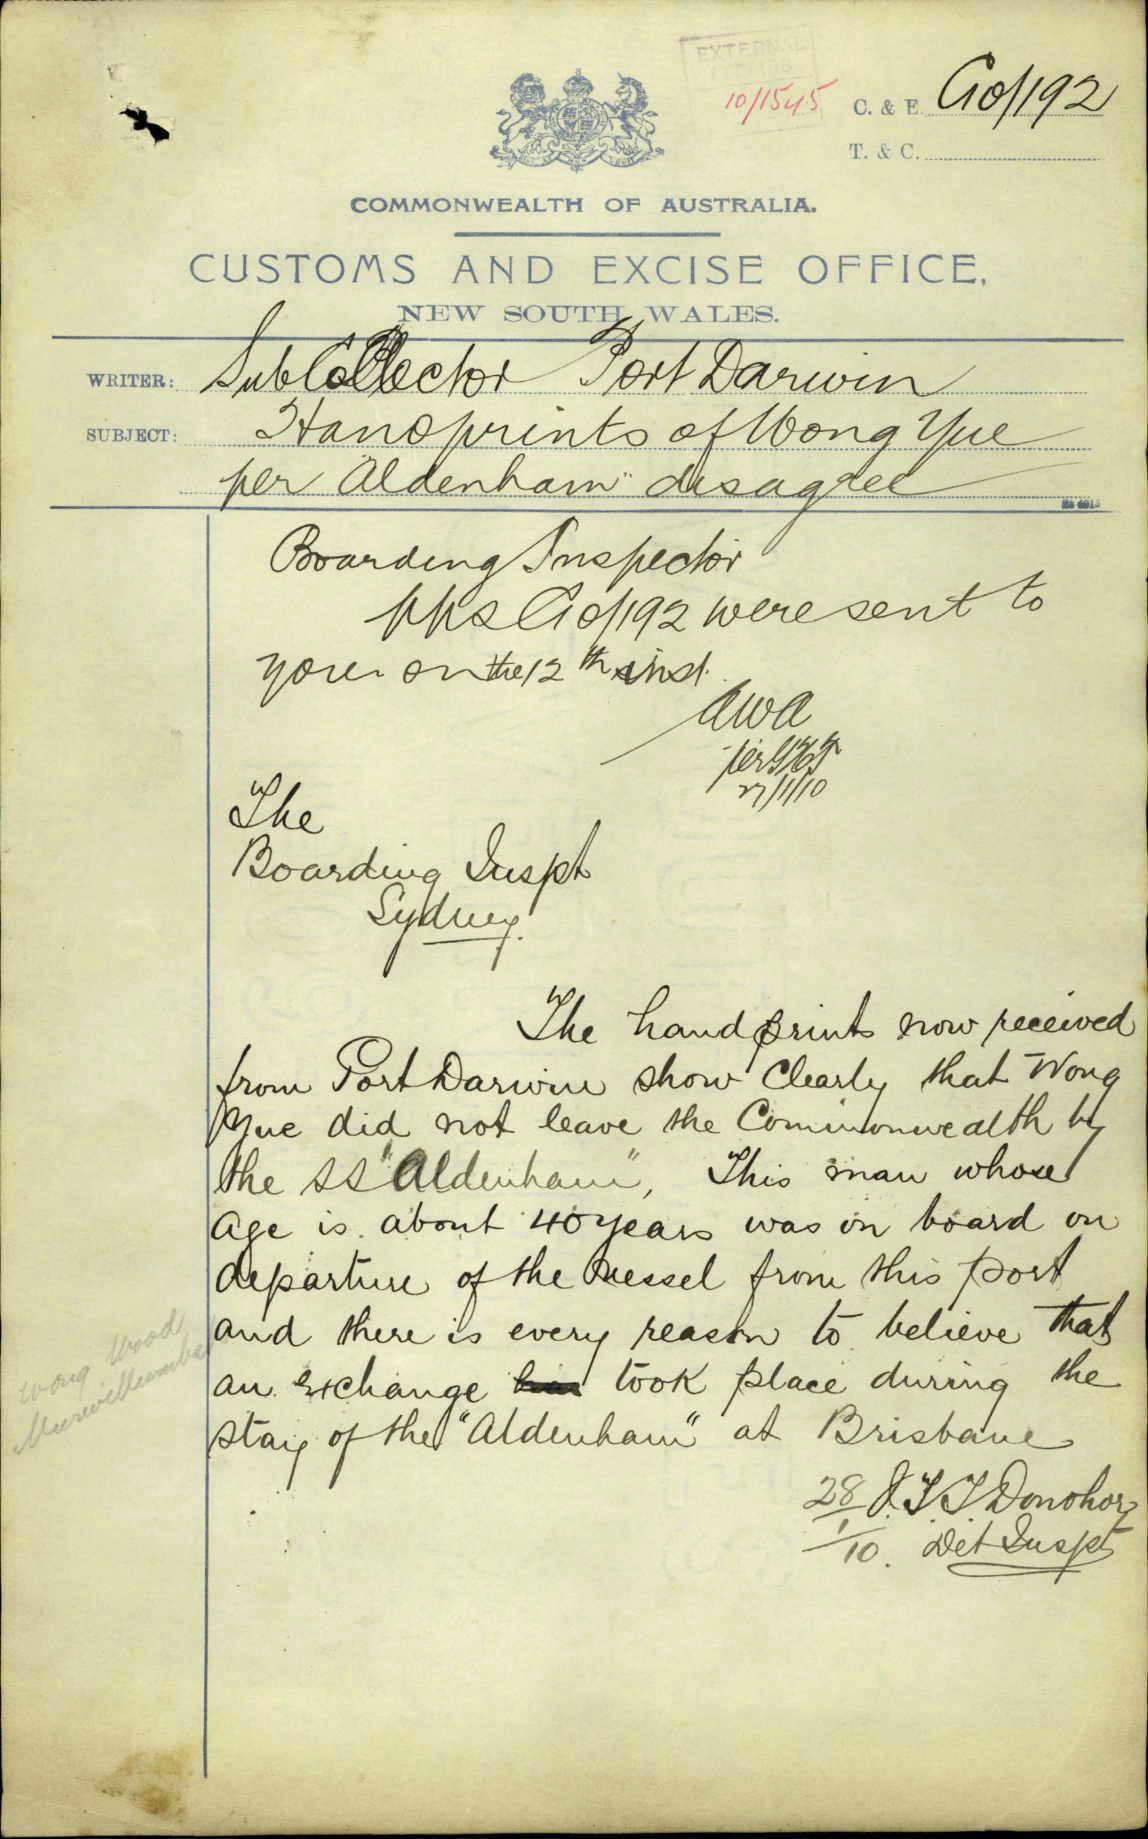 EXTERNAL
10/1545
C. & E. G10/192
T. & C.
COMMONWEALTH OF AUSTRALIA.
CUSTOMS AND EXCISE OFFICE,
NEW SOUTH WALES.
WRITER: Sub Collector Port Darwin
SUBJECT: Handprints of Wong Yue
per "Aldenham" disagree
Boarding Inspector
pps G10/192 were sent to
you on the 12th inst.
AWA
per
27/1/10
The
Boarding Inspt
Sydney.
The handprints now received
from Port Darwin show clearly that Wong
Yue did not leave the Commonwealth by
the SS "Aldenham", This man whose
age is about 40 years was on board on
departure of the vessel from this port
and there is every reason to believe that
an exchange took place during the
stay of the "Aldenham" at Brisbane
28/1/10. J.T.T Donohoe
Det Inspt
Wong Wood
Murwillumbah